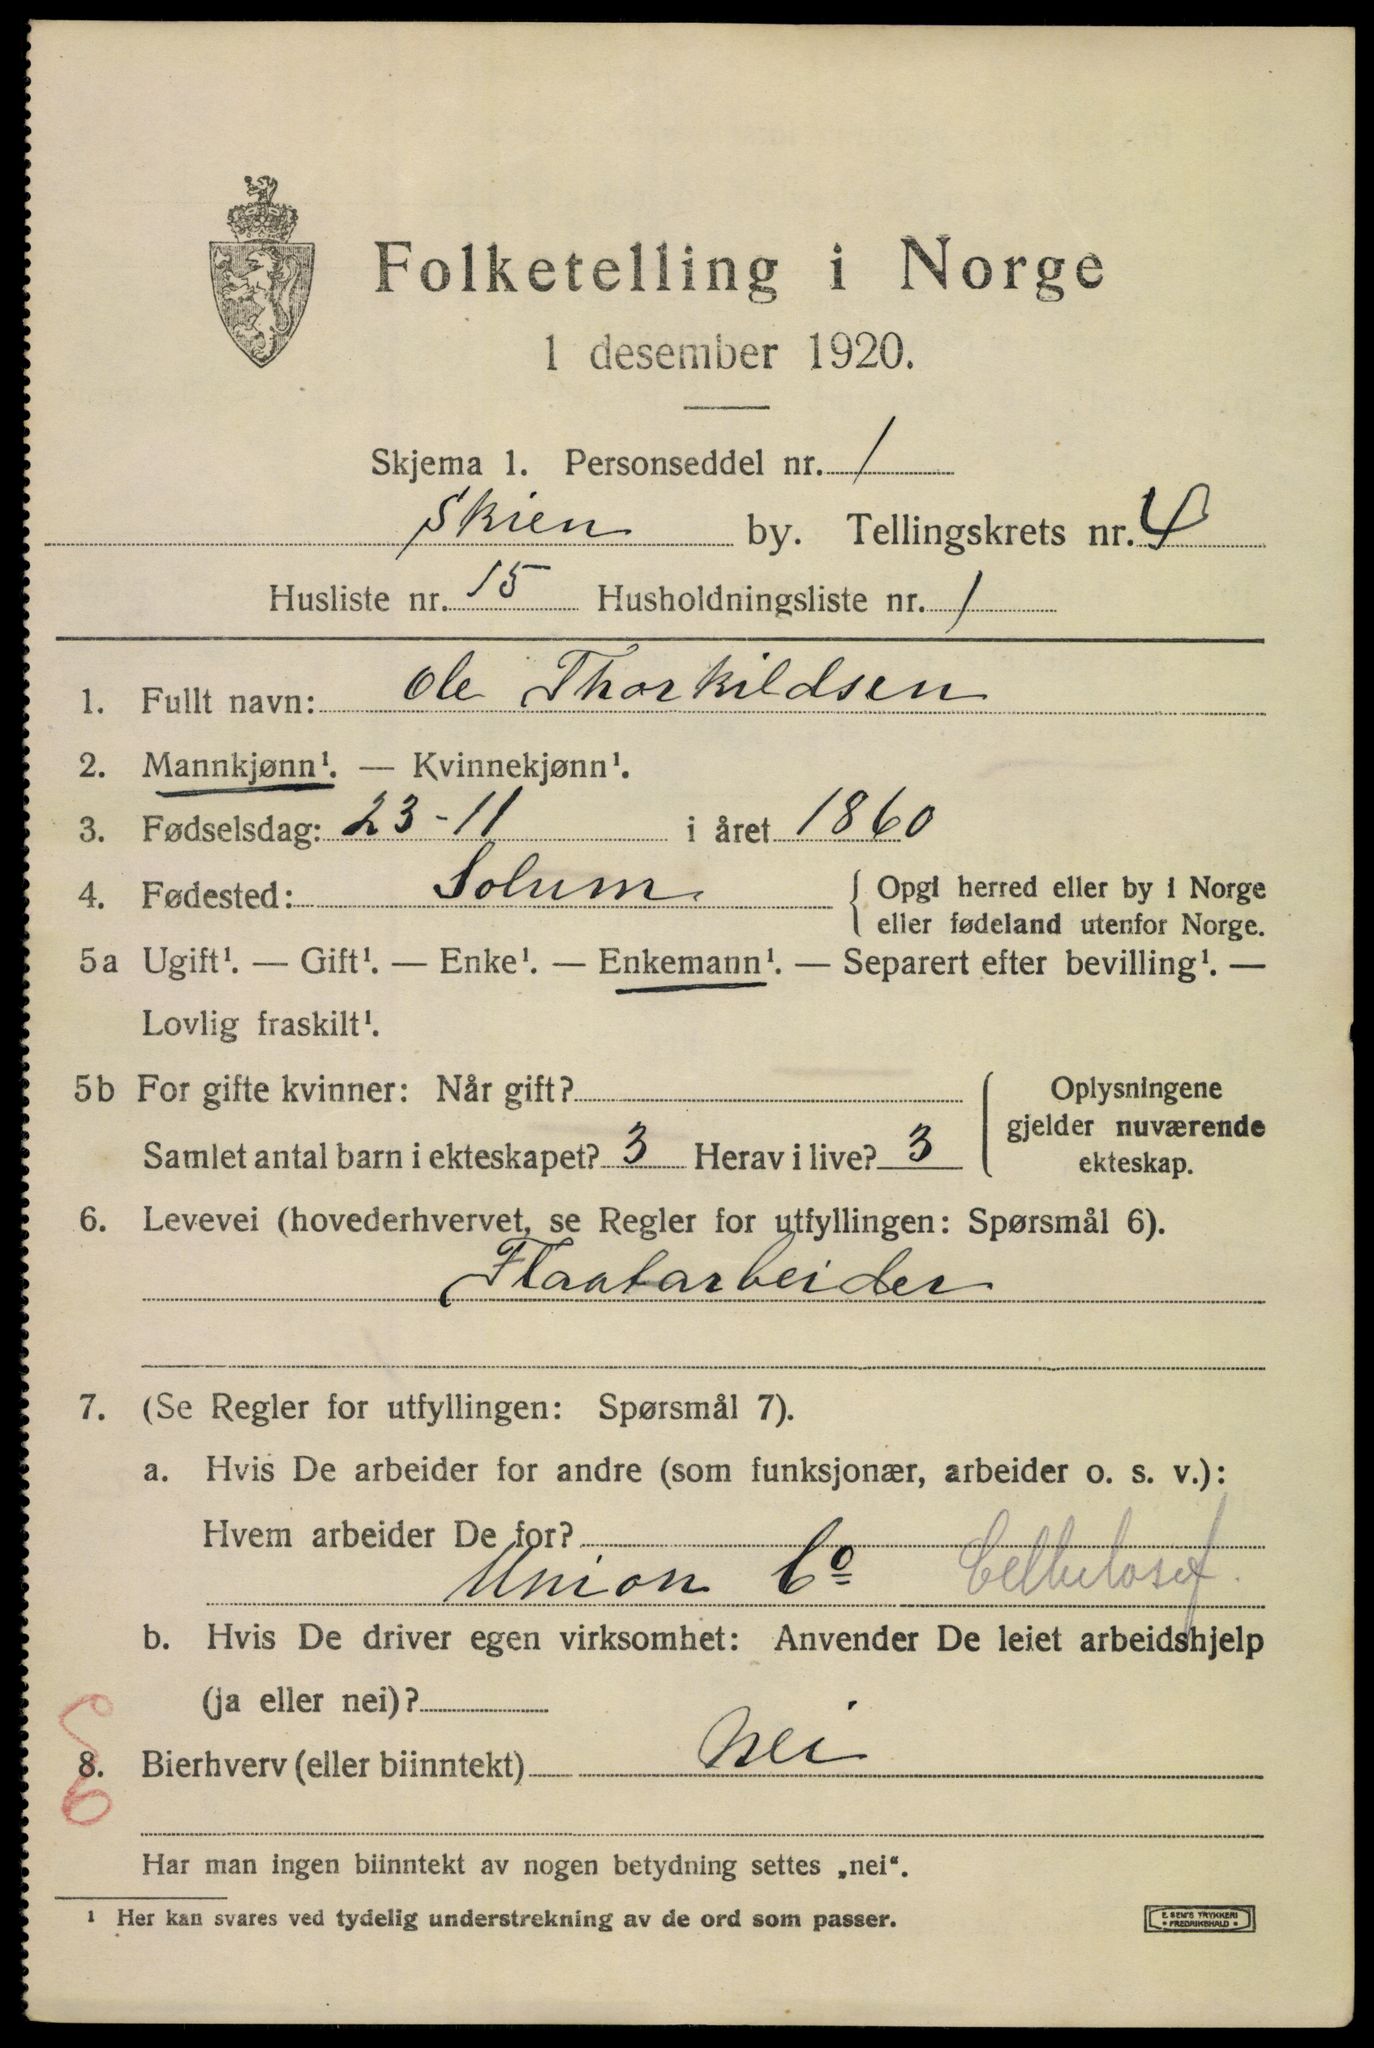 Folketelling i Norge
1 desember 1920.
Skjema 1. Personseddel nr. 1
Skien by. Tellingskrets nr. 4
Husliste nr. 15 Husholdningsliste nr. 1
1. Fullt navn: Ole Thorkildsen
2. Mannkjønn¹. — Kvinnekjønn¹.
3. Fødselsdag: 23-11 i året 1860
4. Fødested: Solum { Opgi herred eller by i Norge
eller fødeland utenfor Norge.
5a Ugift¹. — Gift¹. — Enke¹. — Enkemann¹. — Separert efter bevilling¹. —
Lovlig fraskilt¹.
5b For gifte kvinner: Når gift?
Samlet antal barn i ekteskapet? 3 Herav i live? 3
Oplysningene
gjelder nuværende
ekteskap.
6. Levevei (hovederhvervet, se Regler for utfyllingen: Spørsmål 6).
Flaatarbeider
7. (Se Regler for utfyllingen: Spørsmål 7).
a. Hvis De arbeider for andre (som funksjonær, arbeider o. s. v.):
Hvem arbeider De for?
Union Co Cellulosef.
b. Hvis De driver egen virksomhet: Anvender De leiet arbeidshjelp
(ja eller nei)?
8. Bierhverv (eller biinntekt) Nei
Har man ingen biinntekt av nogen betydning settes „nei“.
¹ Her kan svares ved tydelig understrekning av de ord som passer.
E. SEM'S TRYKKERI
FREDRIKSHALD